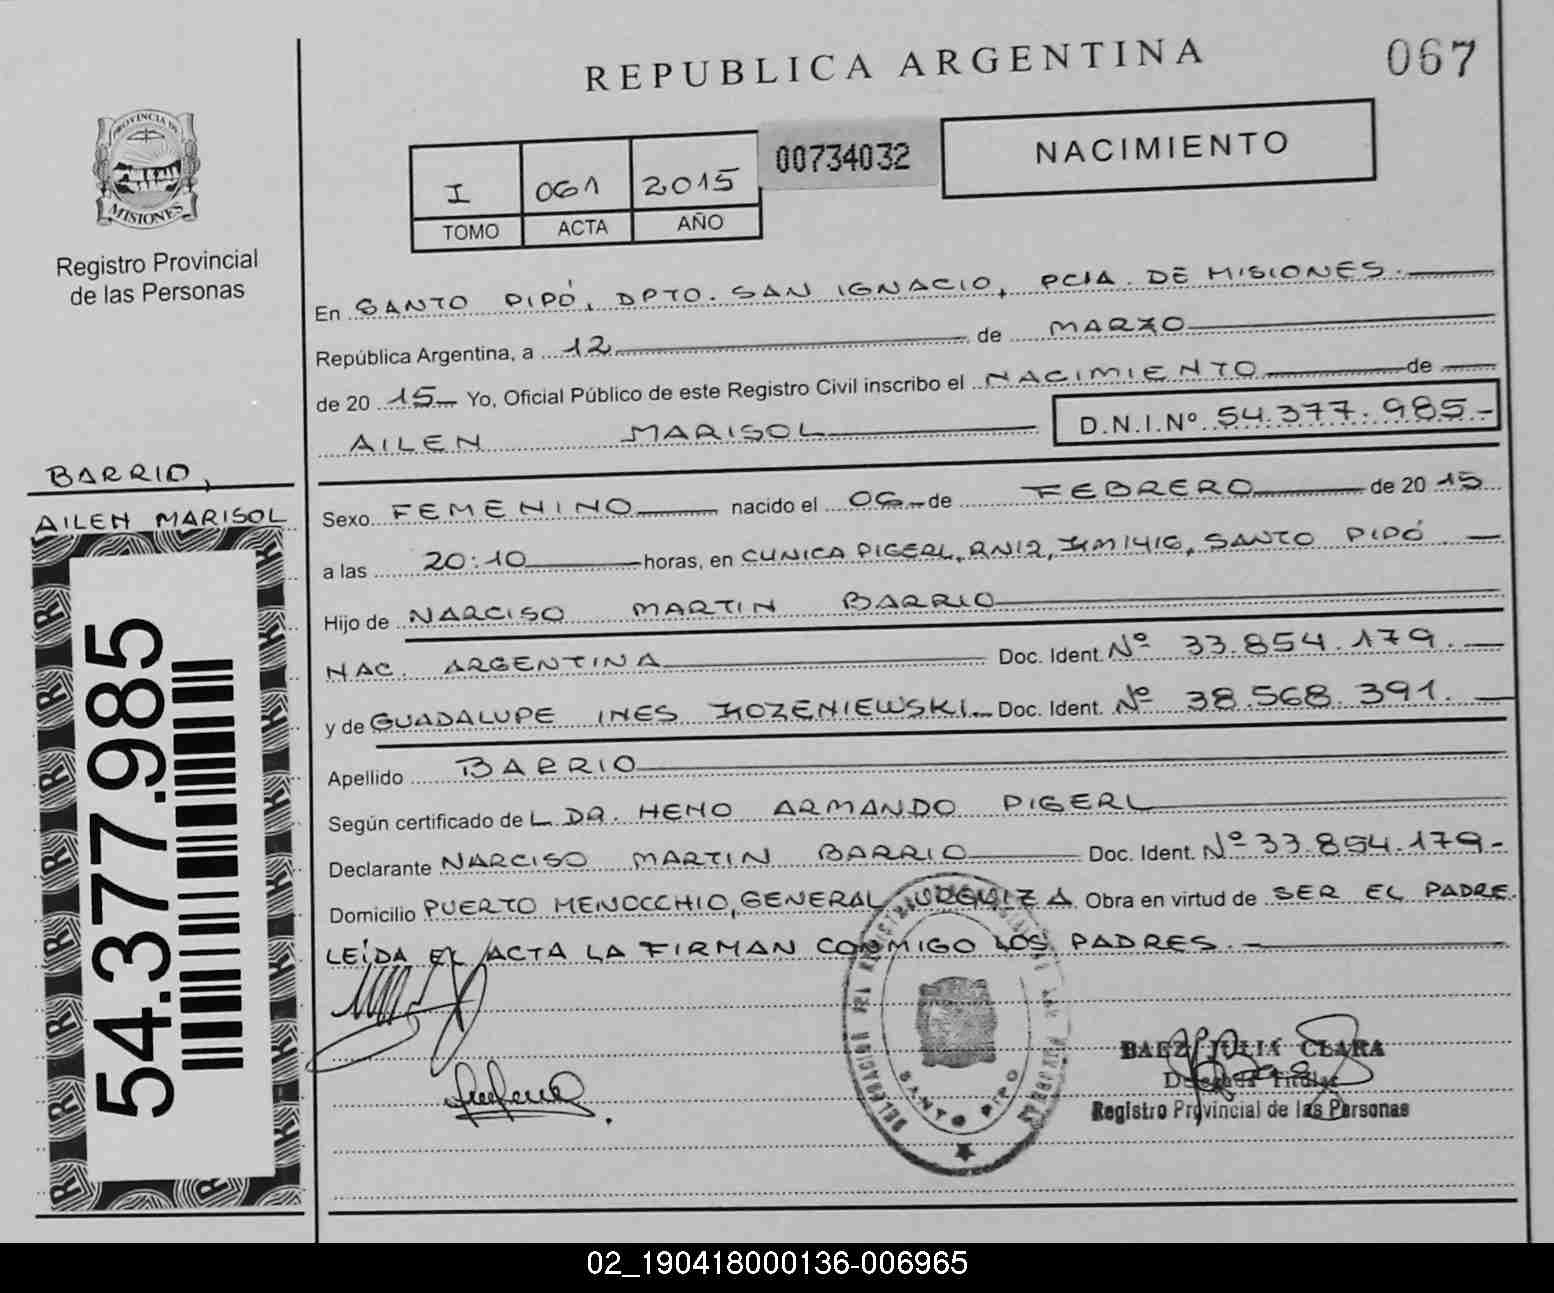 REPUBLICA ARGENTINA
067
PROVINCIA DE
MISIONES
Registro Provincial
de las Personas
I 061 2015
TOMO ACTA AÑO
00734032
NACIMIENTO
En SANTO PIPÓ, DPTO. SAN IGNACIO, PCIA. DE MISIONES.
República Argentina, a 12 de MARZO
de 20 15 Yo, Oficial Público de este Registro Civil inscribo el NACIMIENTO de
AILEN MARISOL D.N.I.Nº 54.377.985.-
BARRIO,
AILEN MARISOL
54.377.985
Sexo FEMENINO nacido el 06 de FEBRERO de 20 15
a las 20:10 horas, en CLINICA PIGERL, RN12, KM1416, SANTO PIPÓ
Hijo de NARCISO MARTIN BARRIO
NAC. ARGENTINA Doc. Ident. Nº 33.854.179.
y de GUADALUPE INES KOZENIEWSKI Doc. Ident. Nº 38.568.391.
Apellido BARRIO
Según certificado de L DR. HENO ARMANDO PIGERL
Declarante NARCISO MARTIN BARRIO Doc. Ident. Nº 33.854.179-
Domicilio PUERTO MENOCCHIO, GENERAL URQUIZA Obra en virtud de SER EL PADRE.
LEÍDA EL ACTA LA FIRMAN CONMIGO LOS PADRES.
SANTO PIPO
BAEZ JULIA CLARA
Delegada Titular
Registro Provincial de las Personas
02_190418000136-006965